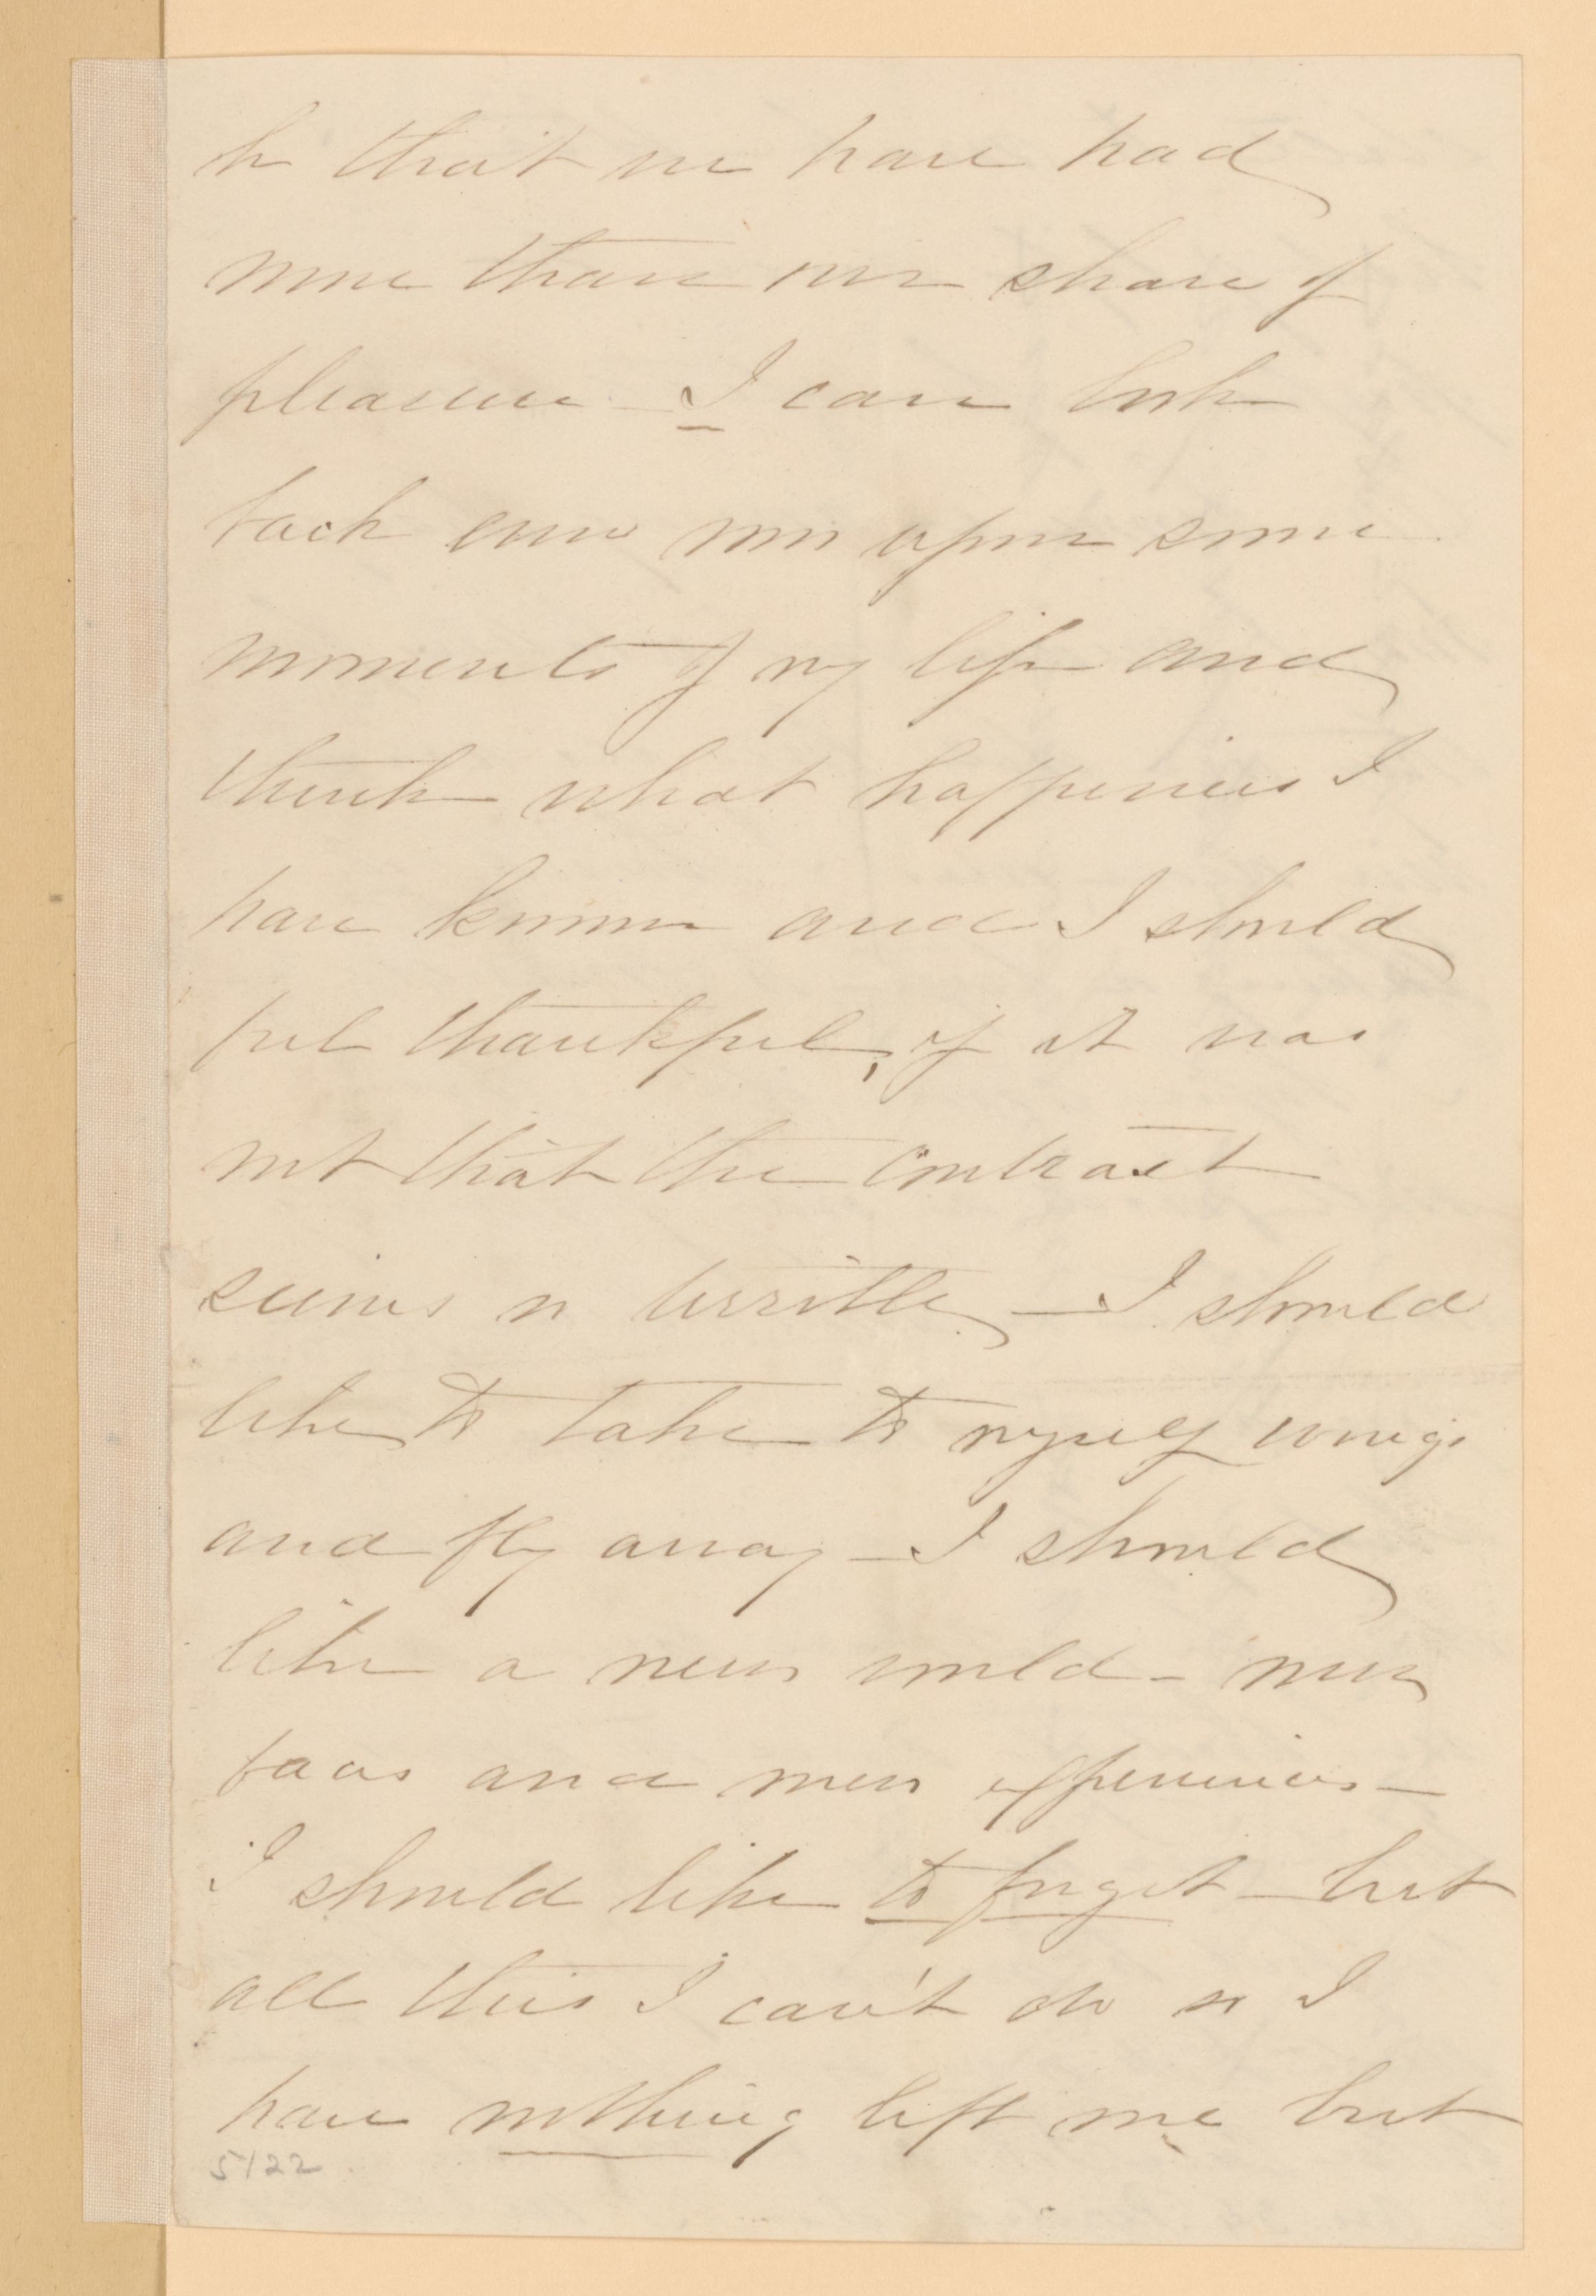 be that we have had
more than our share of
pleasure - I can look
back even now upon some
moments of my life and
think what happiness I
have known and I should
feel thankful, if it was
not that the contrast
seems so terrible - I should
like to take to myself wings
and fly away - I should
like a new world - new
faces and new experiences -
I should like to forget - but
all this I can't do so I
have nothing left me but
5122